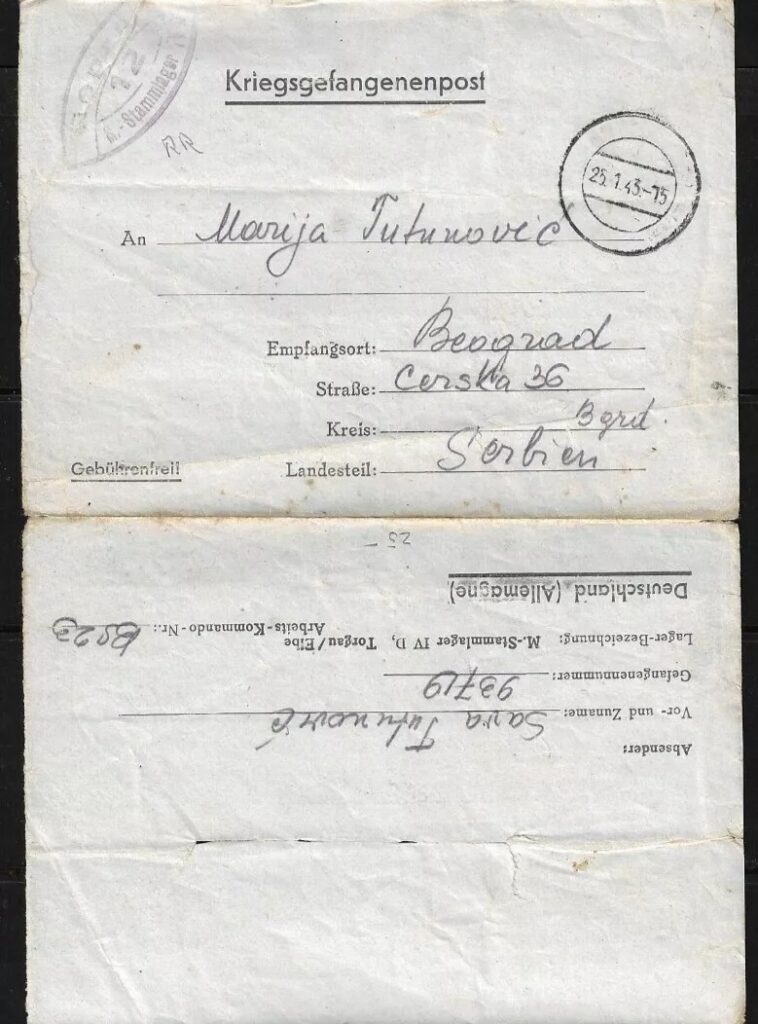 12
M.-Stammlager
Kriegsgefangenenpost
RR
25.1.43.-15
An Marija Tutunović
Empfangsort: Beograd
Straße: Cerska 36
Kreis: Bgrd.
Gebührenfrei!
Landesteil: Serbien
Absender:
Vor- und Zuname: Sava Tutunović
Gefangenennummer: 93719
Lager-Bezeichnung: M.-Stammlager IV D, Torgau/Elbe
Arbeits-Kommando-Nr.:
Deutschland (Allemagne)
25